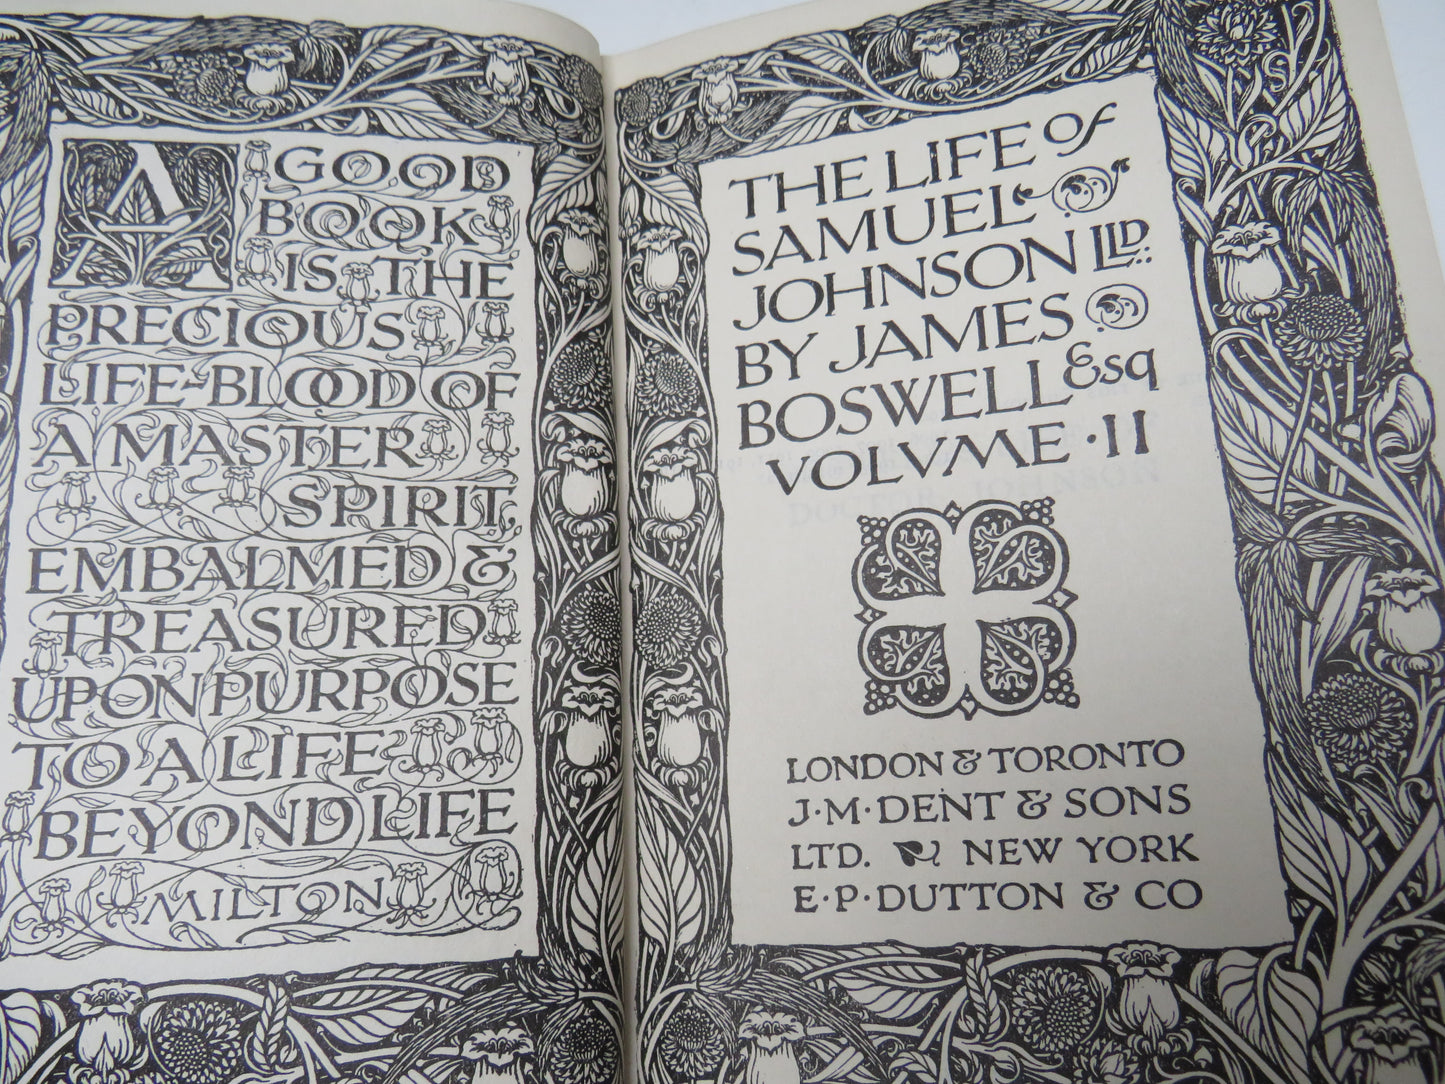 A GOOD
BOOK
IS THE
PRECIOUS
LIFE-BLOOD OF
A MASTER
SPIRIT,
EMBALMED &
TREASURED
UPON PURPOSE
TO A LIFE
BEYOND LIFE
MILTON
THE LIFE of
SAMUEL
JOHNSON LLD.
BY JAMES
BOSWELL Esq
VOLVME · II
DOCTOR JOHNSON
LONDON & TORONTO
J·M·DENT & SONS
LTD. NEW YORK
E·P·DUTTON & CO